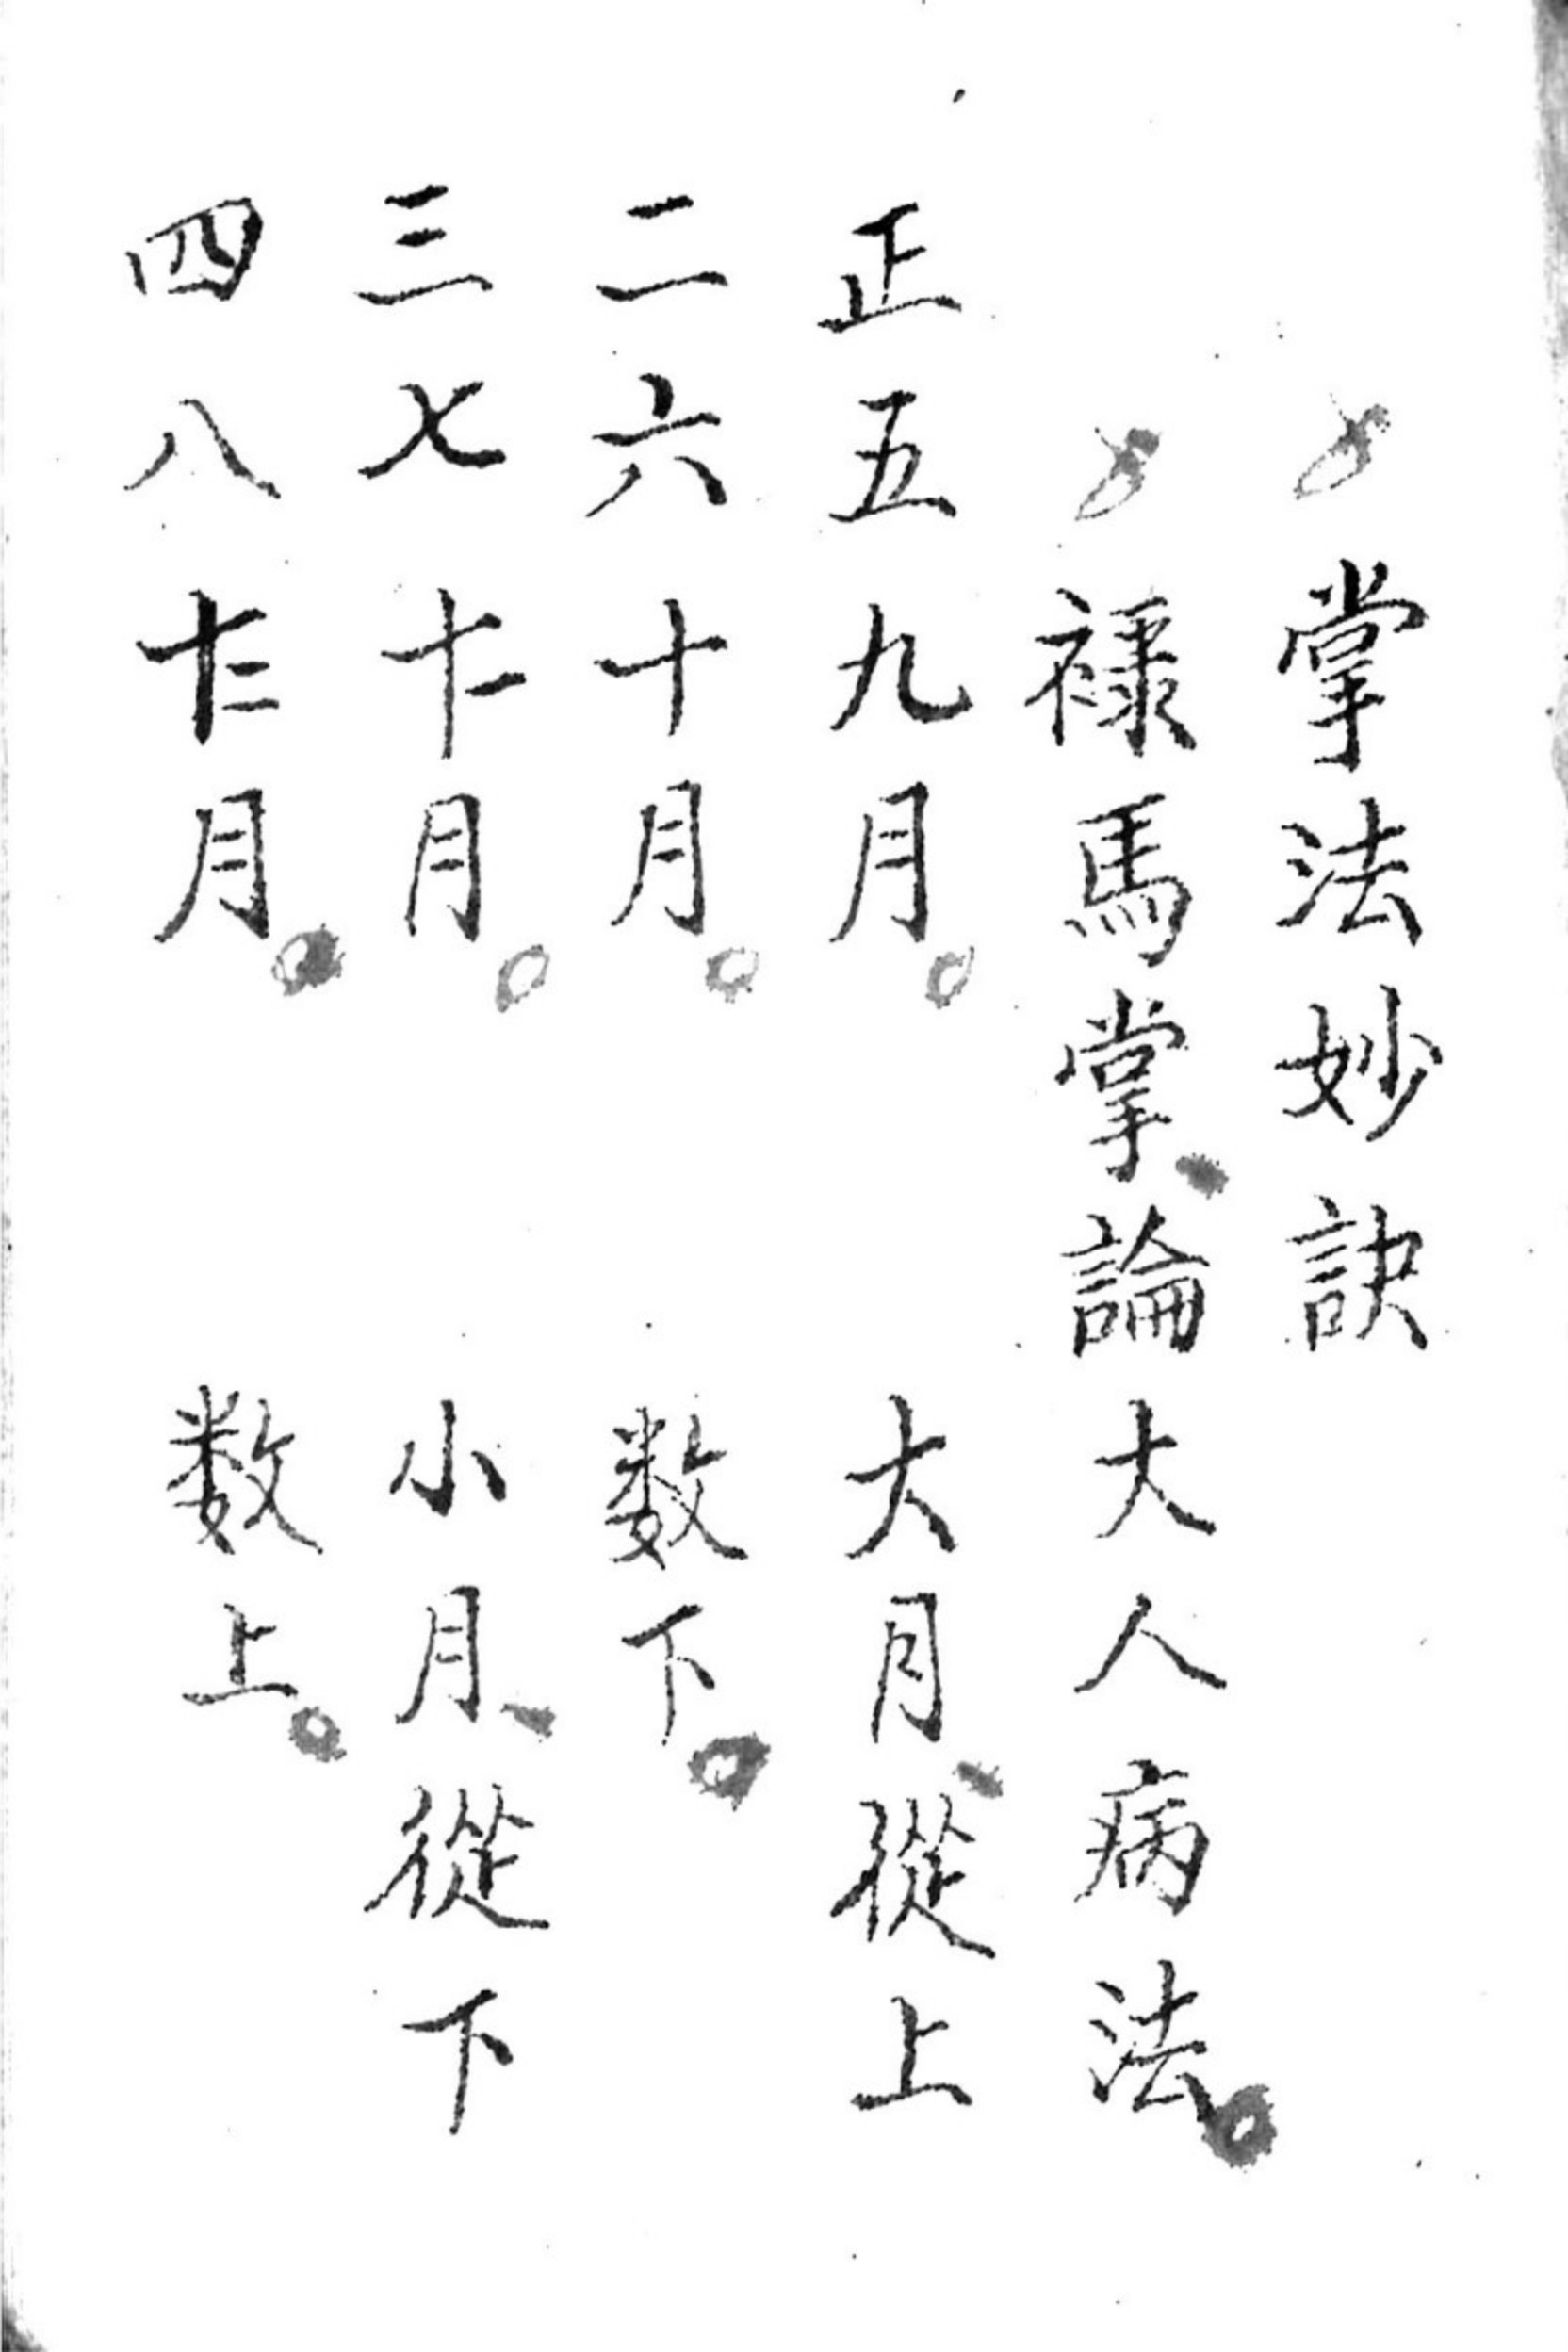 掌法妙訣
祿馬掌、論大人病法。
正五九月。 大月、從上
二六十月。 数下。
三七十一月。 小月、從下
四八十二月。 数上。